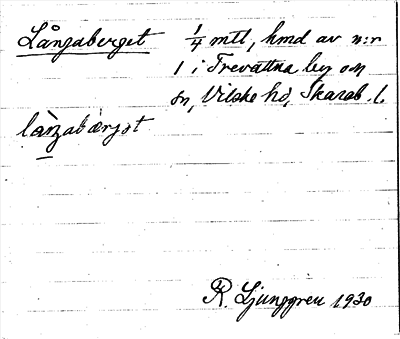 Långaberget 1/4 mtl, hmd av n:r
1 i Trevattna by och
sn, Vilske hd, Skarab. l.
làŋabærjət
R. Ljunggren 1930